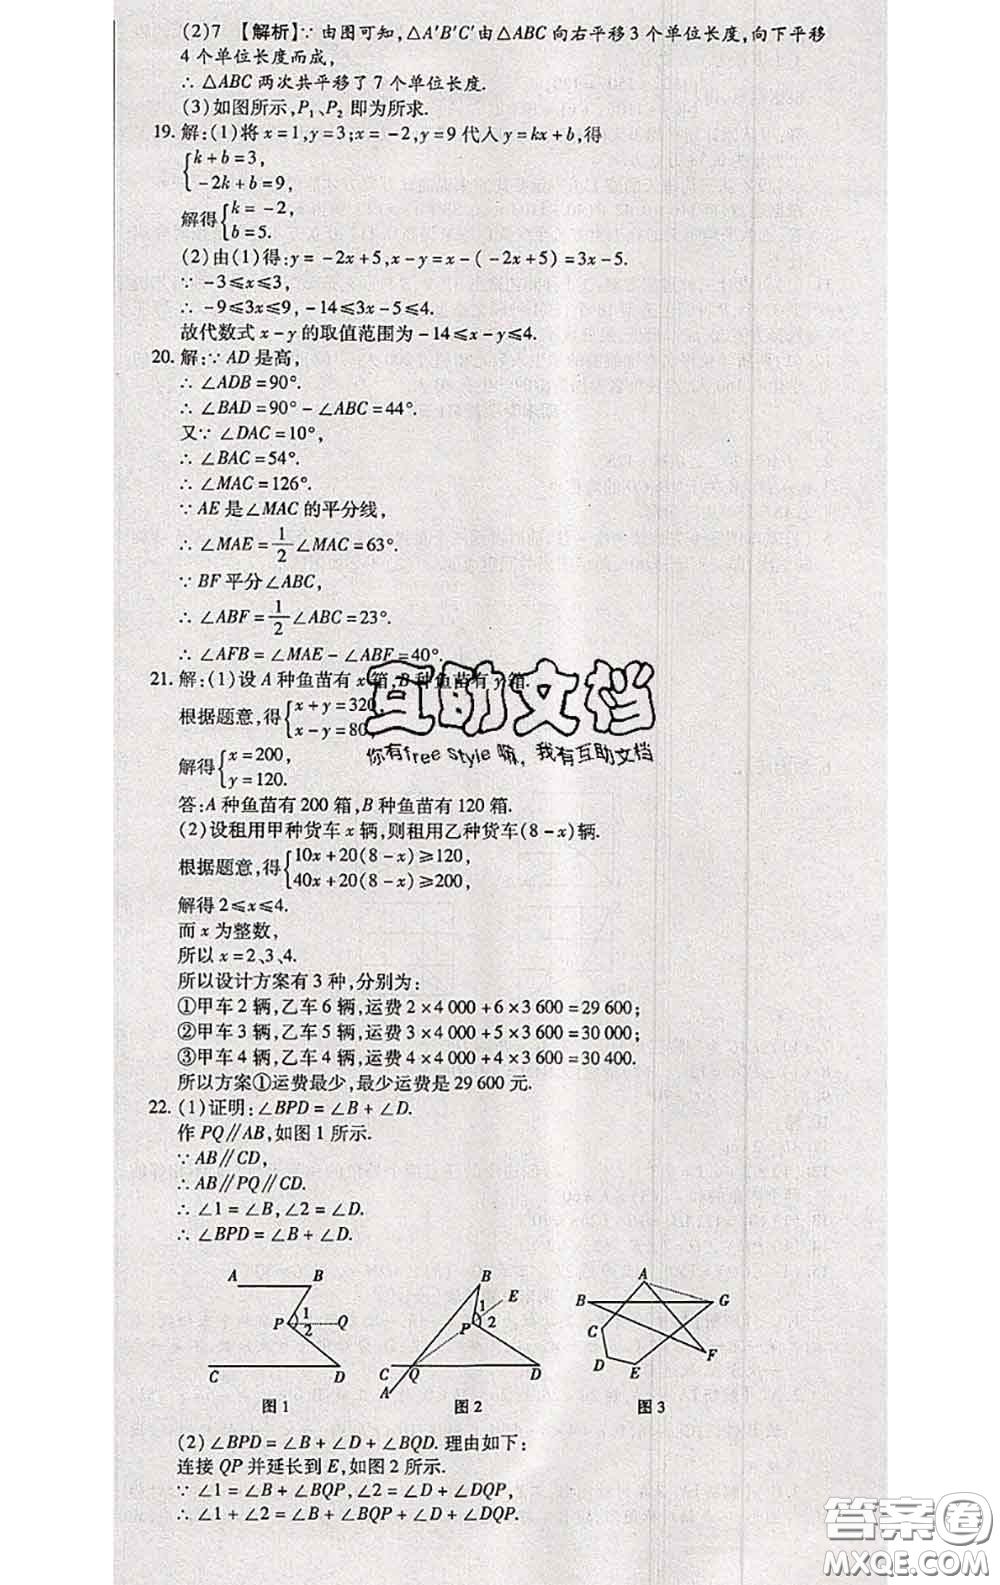 (2)7 【解析】∵ 由图可知,△A′B′C′由△ABC 向右平移 3 个单位长度,向下平移
4 个单位长度而成,
∴ △ABC 两次共平移了 7 个单位长度.
(3)如图所示,P₁、P₂ 即为所求.
19. 解:(1)将 x=1,y=3;x=-2,y=9 代入 y=kx+b,得
k+b=3,
-2k+b=9,
解得 k=-2,
b=5.
(2)由(1)得:y=-2x+5,x-y=x-(-2x+5)=3x-5.
∵ -3≤x≤3,
∴ -9≤3x≤9,-14≤3x-5≤4.
故代数式 x-y 的取值范围为-14≤x-y≤4.
20. 解:∵ AD 是高,
∴ ∠ADB=90°.
∴ ∠BAD=90°-∠ABC=44°.
又∵ ∠DAC=10°,
∴ ∠BAC=54°.
∴ ∠MAC=126°.
∵ AE 是∠MAC 的平分线,
∴ ∠MAE=1/2∠MAC=63°.
∵ BF 平分∠ABC,
∴ ∠ABF=1/2∠ABC=23°.
∴ ∠AFB=∠MAE-∠ABF=40°.
21. 解:(1)设 A 种鱼苗有 x 箱,B 种鱼苗有 y 箱.
根据题意,得 x+y=320,
x-y=80,
解得 x=200,
y=120.
答:A 种鱼苗有 200 箱,B 种鱼苗有 120 箱.
(2)设租用甲种货车 x 辆,则租用乙种货车(8-x)辆.
根据题意,得 10x+20(8-x)≥120,
40x+20(8-x)≥200,
解得 2≤x≤4.
而 x 为整数,
所以 x=2、3、4.
所以设计方案有 3 种,分别为:
①甲车 2 辆,乙车 6 辆,运费 2×4 000+6×3 600=29 600;
②甲车 3 辆,乙车 5 辆,运费 3×4 000+5×3 600=30 000;
③甲车 4 辆,乙车 4 辆,运费 4×4 000+4×3 600=30 400.
所以方案①运费最少,最少运费是 29 600 元.
22. (1)证明:∠BPD=∠B+∠D.
作 PQ∥AB,如图 1 所示.
∵ AB∥CD,
∴ AB∥PQ∥CD.
∴ ∠1=∠B,∠2=∠D.
∴ ∠BPD=∠B+∠D.
A B P 1 2 Q C D
图 1
B E 1 2 P C Q D A
图 2
A B G C D E F
图 3
(2)∠BPD=∠B+∠D+∠BQD. 理由如下:
连接 QP 并延长到 E,如图 2 所示.
∵ ∠1=∠B+∠BQP,∠2=∠D+∠DQP,
∴ ∠1+∠2=∠B+∠BQP+∠D+∠DQP.
互助文档
你有free style 嘛,我有互助文档
答案圈
MXQE.COM